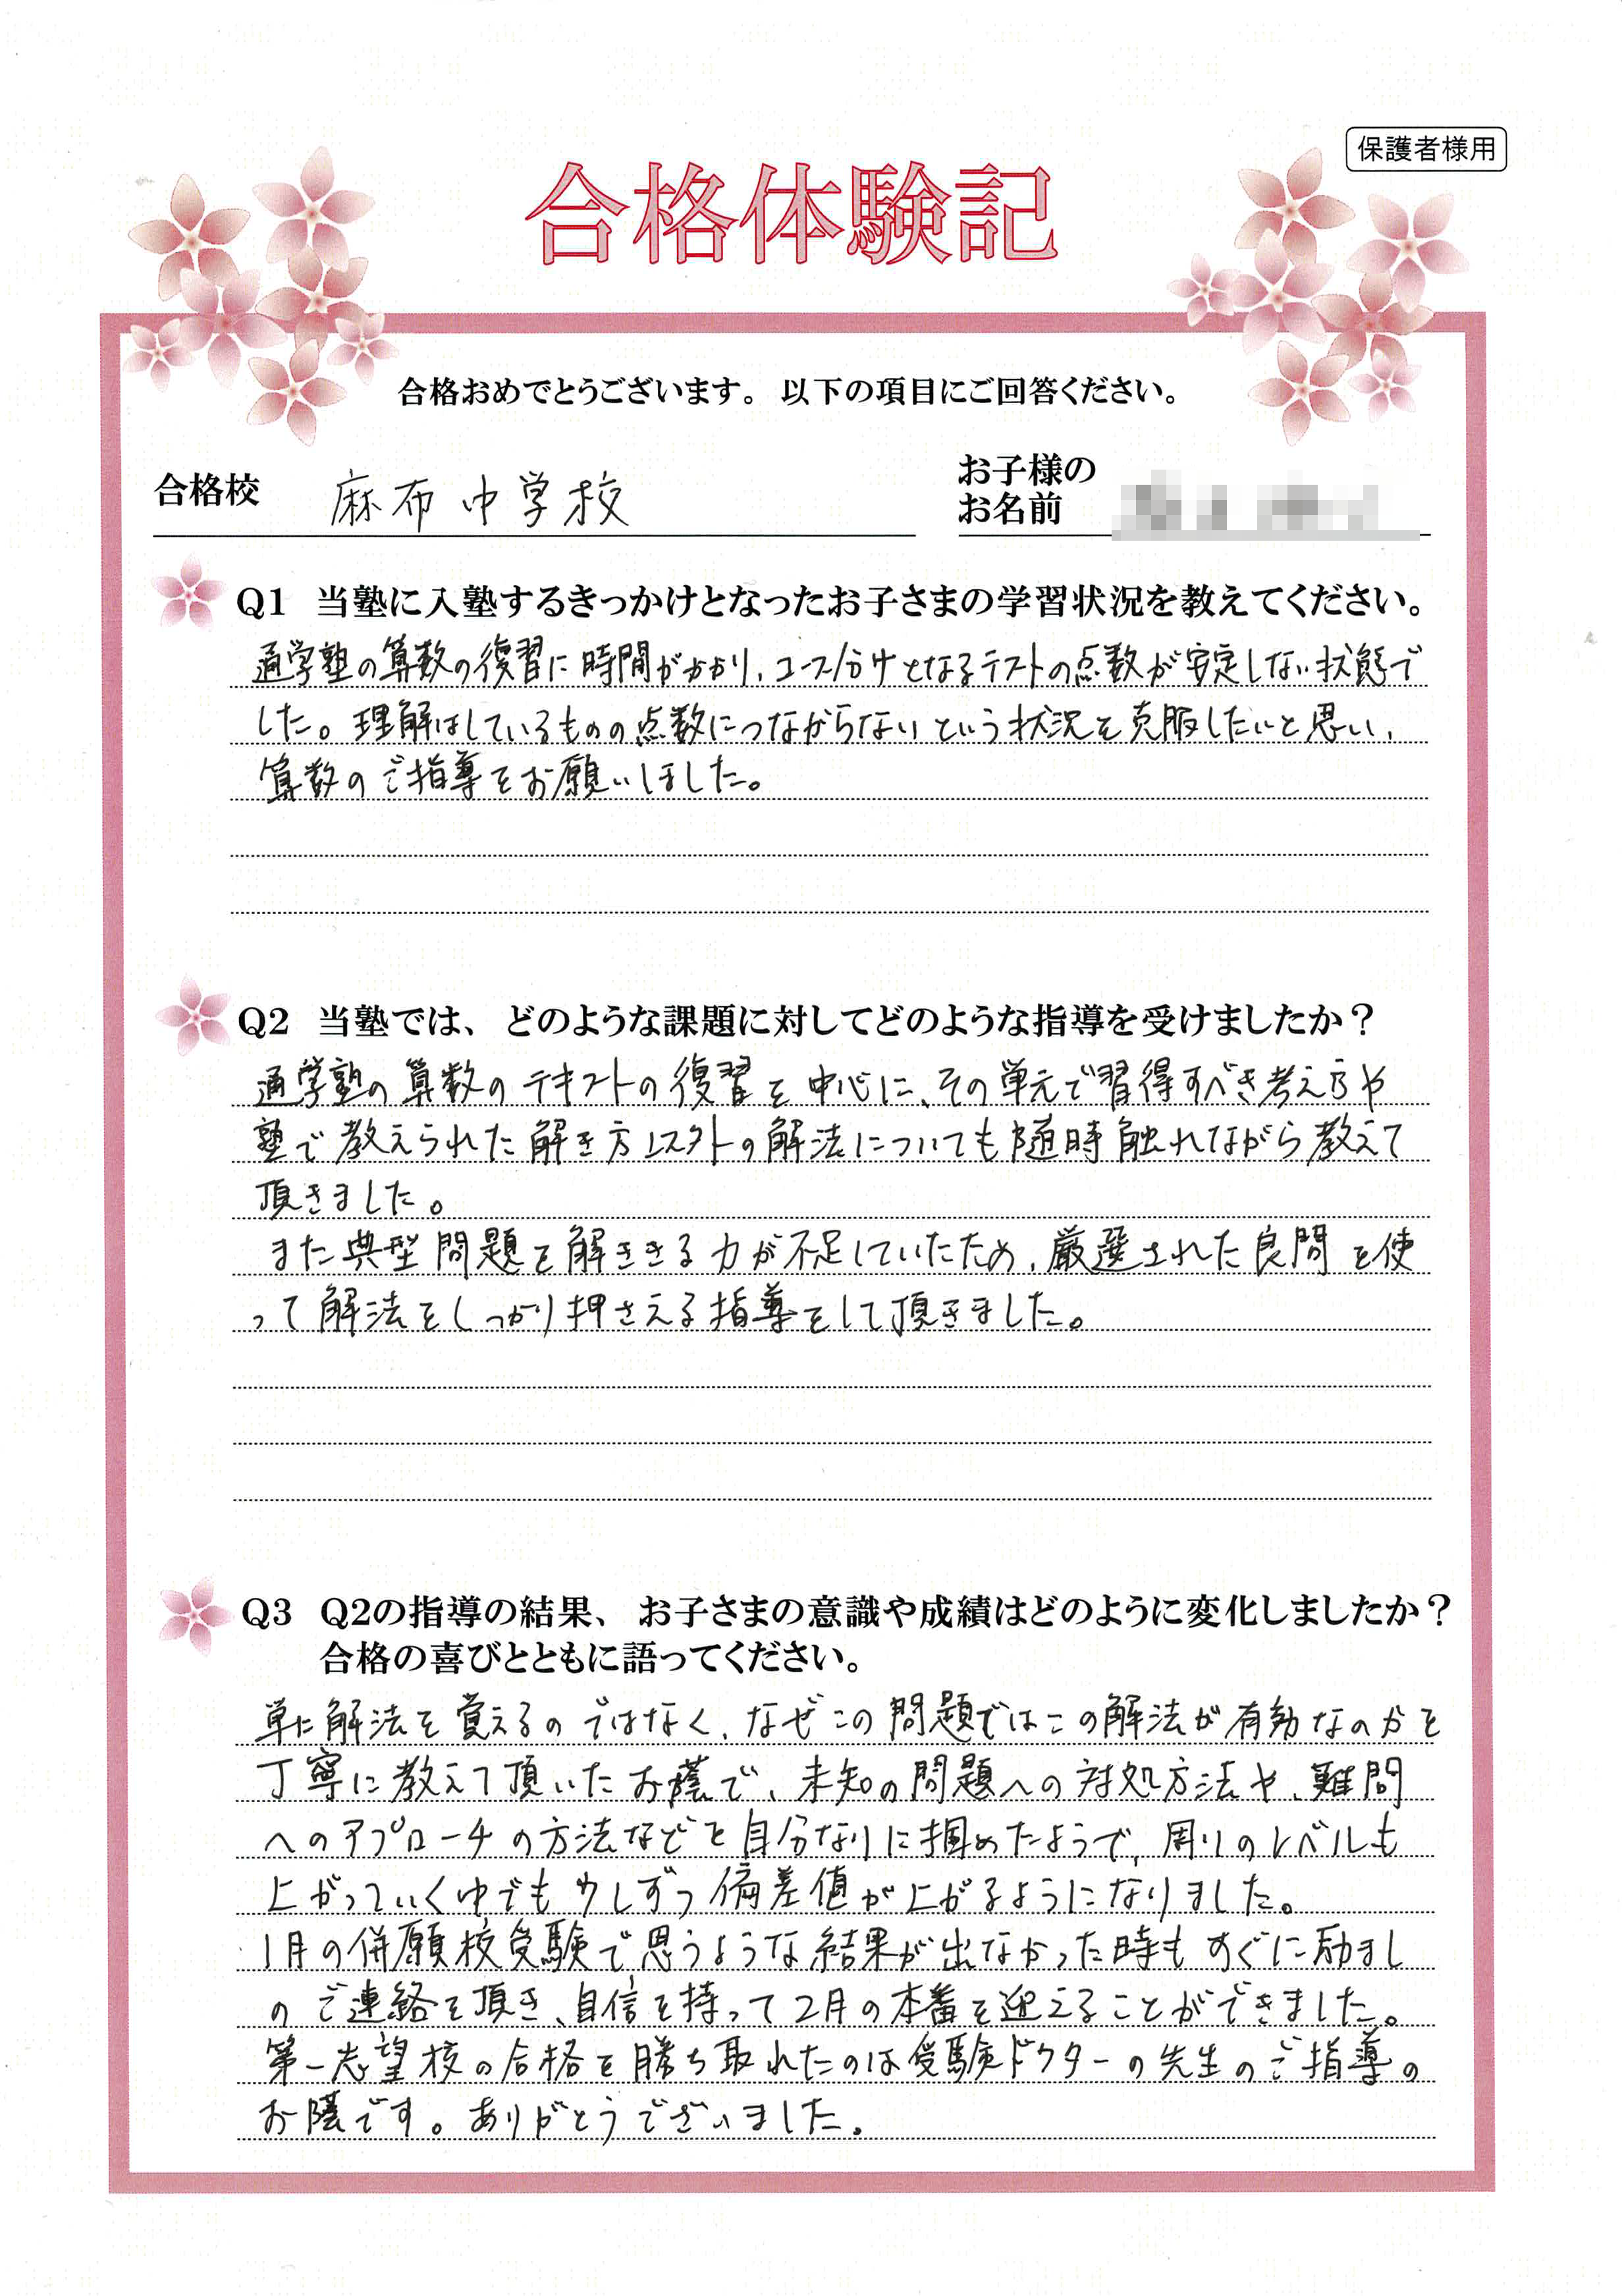 保護者様用
合格体験記
合格おめでとうございます。以下の項目にご回答ください。
合格校 麻布中学校
お子様の
お名前
Q1 当塾に入塾するきっかけとなったお子さまの学習状況を教えてください。
通学塾の算数の復習に時間がかかり、コース分けとなるテストの点数が安定しない状態で
した。理解はしているものの点数につながらないという状況を克服したいと思い、
算数のご指導をお願いしました。
Q2 当塾では、どのような課題に対してどのような指導を受けましたか？
通学塾の算数のテキストの復習を中心に、その単元で習得すべき考え方や
塾で教えられた解き方以外の解法についても随時触れながら教えて
頂きました。
また典型問題を解ききる力が不足していたため、厳選された良問を使
って解法をしっかり押さえる指導をして頂きました。
Q3 Q2の指導の結果、お子さまの意識や成績はどのように変化しましたか？
合格の喜びとともに語ってください。
単に解法を覚えるのではなく、なぜこの問題ではこの解法が有効なのかを
丁寧に教えて頂いたお蔭で、未知の問題への対処方法や、難問
へのアプローチの方法などを自分なりに掴めたようで、周りのレベルも
上がっていく中でも少しずつ偏差値が上がるようになりました。
1月の併願校受験で思うような結果が出なかった時もすぐに励まし
のご連絡を頂き、自信を持って2月の本番を迎えることができました。
第一志望校の合格を勝ち取れたのは受験ドクターの先生のご指導の
お蔭です。ありがとうございました。